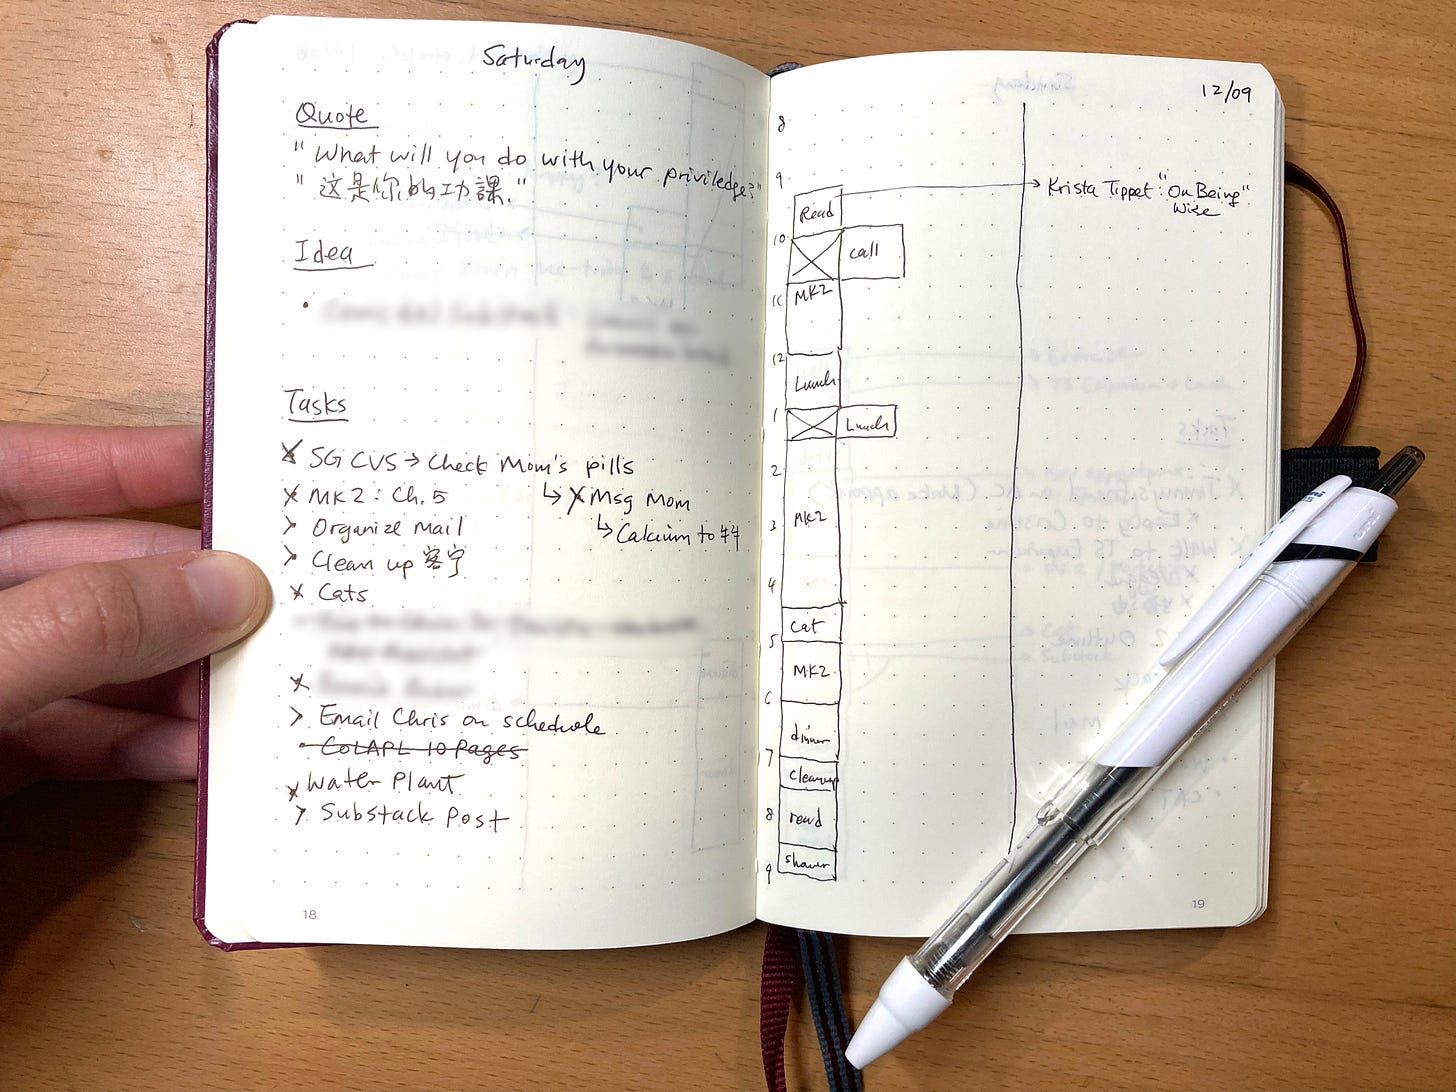 Saturday
Quote
"What will you do with your priviledge?"
"这是你的功課."
Idea
Tasks
X SG CVS → Check Mom's pills
X MK2: Ch. 5
↳ X Msg Mom
↳ Calcium to #4
> Organize Mail
> Clean up 客宁
X Cats
X
> Email Chris on schedule
• CoLAPL 10 Pages
X Water Plant
> Substack Post
18
12/09
8
9
Read → Krista Tippet: "On Being"
Wise
10
call
11
MK2
12
Lunch
1
Lunch
2
3
MK2
4
cat
5
MK2
6
dinner
7
cleanup
8
read
shower
9
19
uni